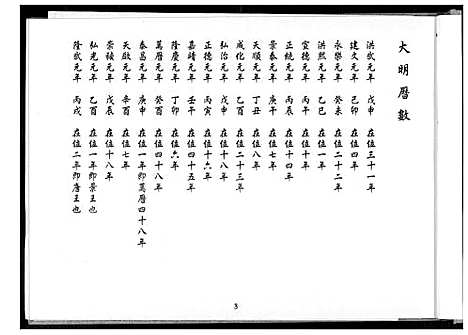 大明曆數
洪武元年 戊申 在位三十一年
建文元年 己卯 在位四年
永樂元年 癸未 在位二十二年
洪熙元年 乙巳 在位一年
宣德元年 丙午 在位十年
正統元年 丙辰 在位十四年
景泰元年 庚午 在位七年
天順元年 丁丑 在位八年
成化元年 乙酉 在位二十三年
弘治元年 戊申 在位十八年
正德元年 丙寅 在位十六年
嘉靖元年 壬午 在位四十五年
隆慶元年 丁卯 在位六年
萬曆元年 癸酉 在位四十八年
泰昌元年 庚申 在位一年即萬曆四十八年
天啟元年 辛酉 在位七年
崇禎元年 戊辰 在位十八年
弘光元年 乙酉 在位一年即景王也
隆武元年 丙戌 在位二年即唐王也
3